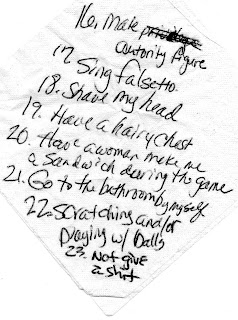 16. Make
autority figure
17. Sing falsetto
18. Shave my head
19. Have a hairy chest
20. Have a woman make me
a sandwich during the game
21. Go to the bathroom by myself
22. Scratching and/or
playing w/ Balls
23. Not give
a shit